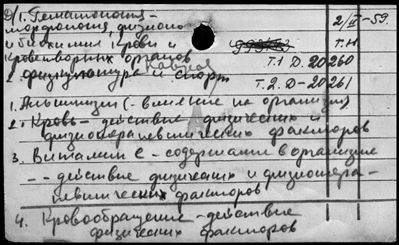 Д/1. Гематология - 2/II-59.
морфология, физиоло
и биохимия крови и т.н.
кроветворных органов т.1 Д-20260
2 физкультура и спорт т.2. Д-20261
1. Альпинизм (- влияние на организм)
2. Кровь - действие физических и
физиотерапевтических факторов
3. Витамин С - содержание в организме
- - действие физических и физиотера-
певтических факторов
4. Кровообращение - действие
физических факторов